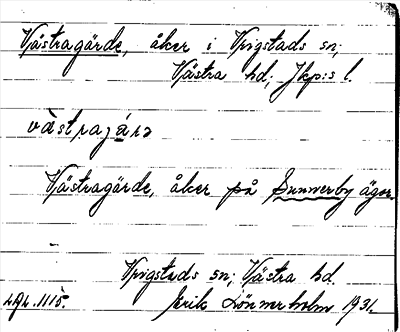 Västragärde, åker i Vrigstads sn;
Västra hd; Jkp:s l.
västrajárə
Västragärde, åker på Sunnerby ägor.
Vrigstads sn; Västra hd.
Erik Lönnerholm 1931.